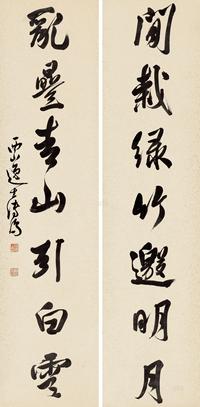 閒栽綠竹邀明月
亂疊青山引白雲
西山逸士溥儒